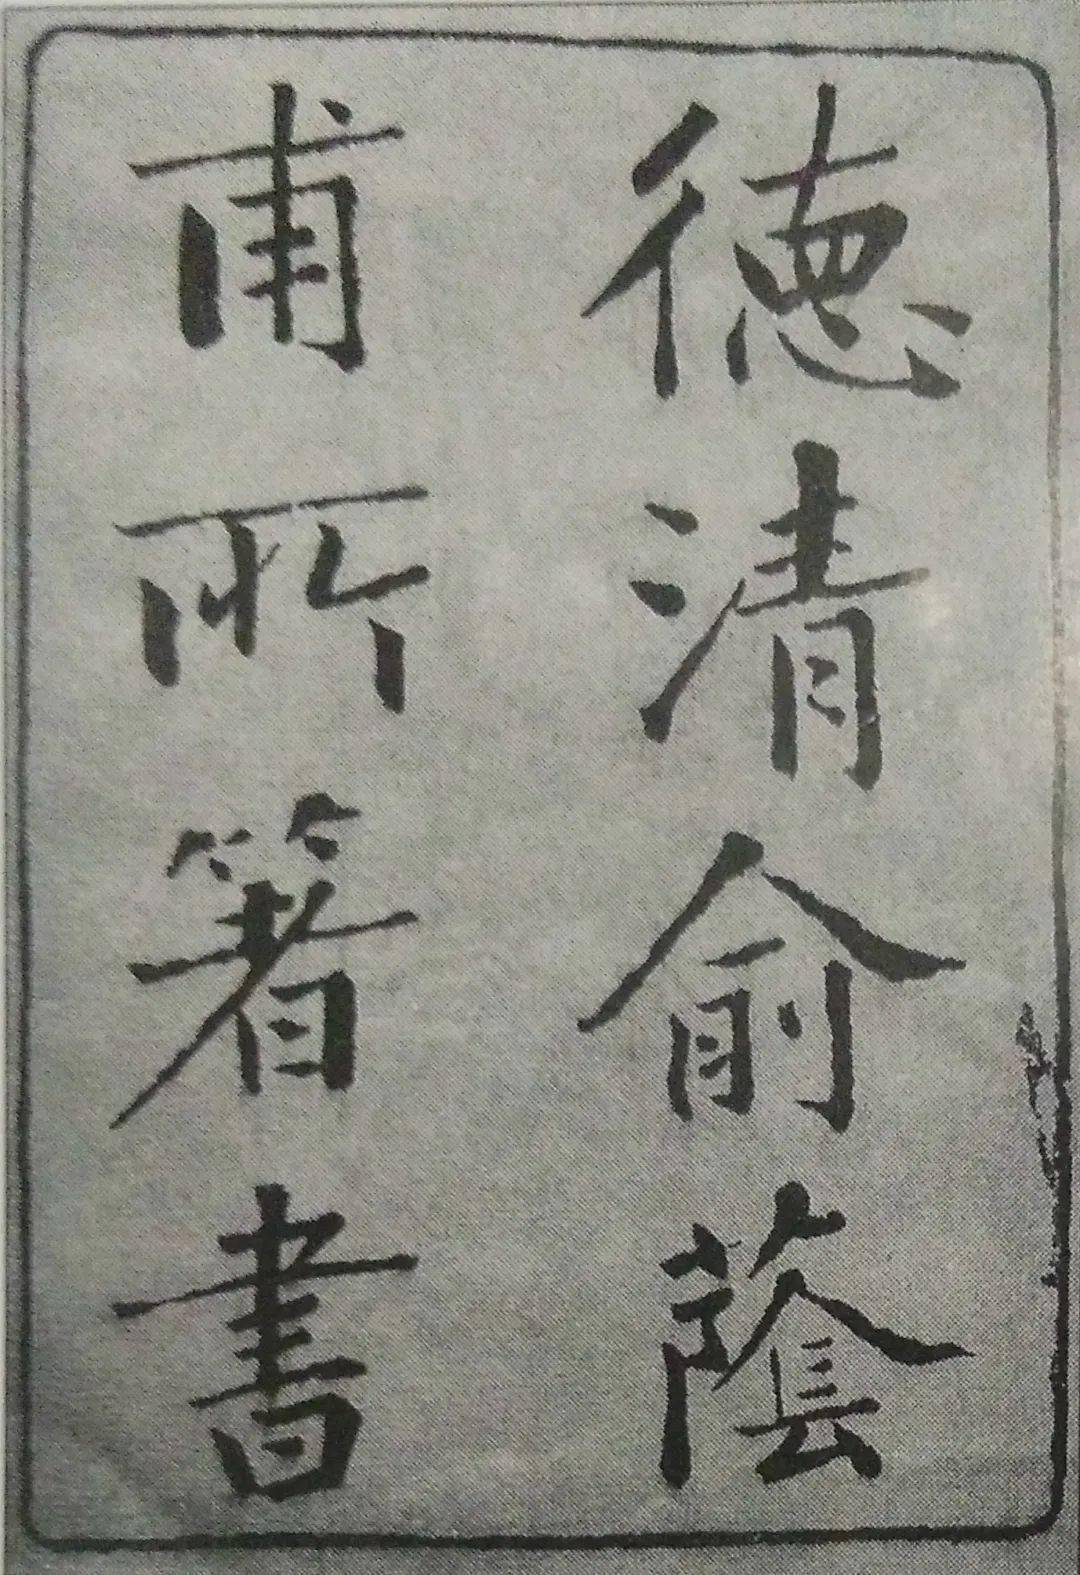 德清俞蔭
甫所著書